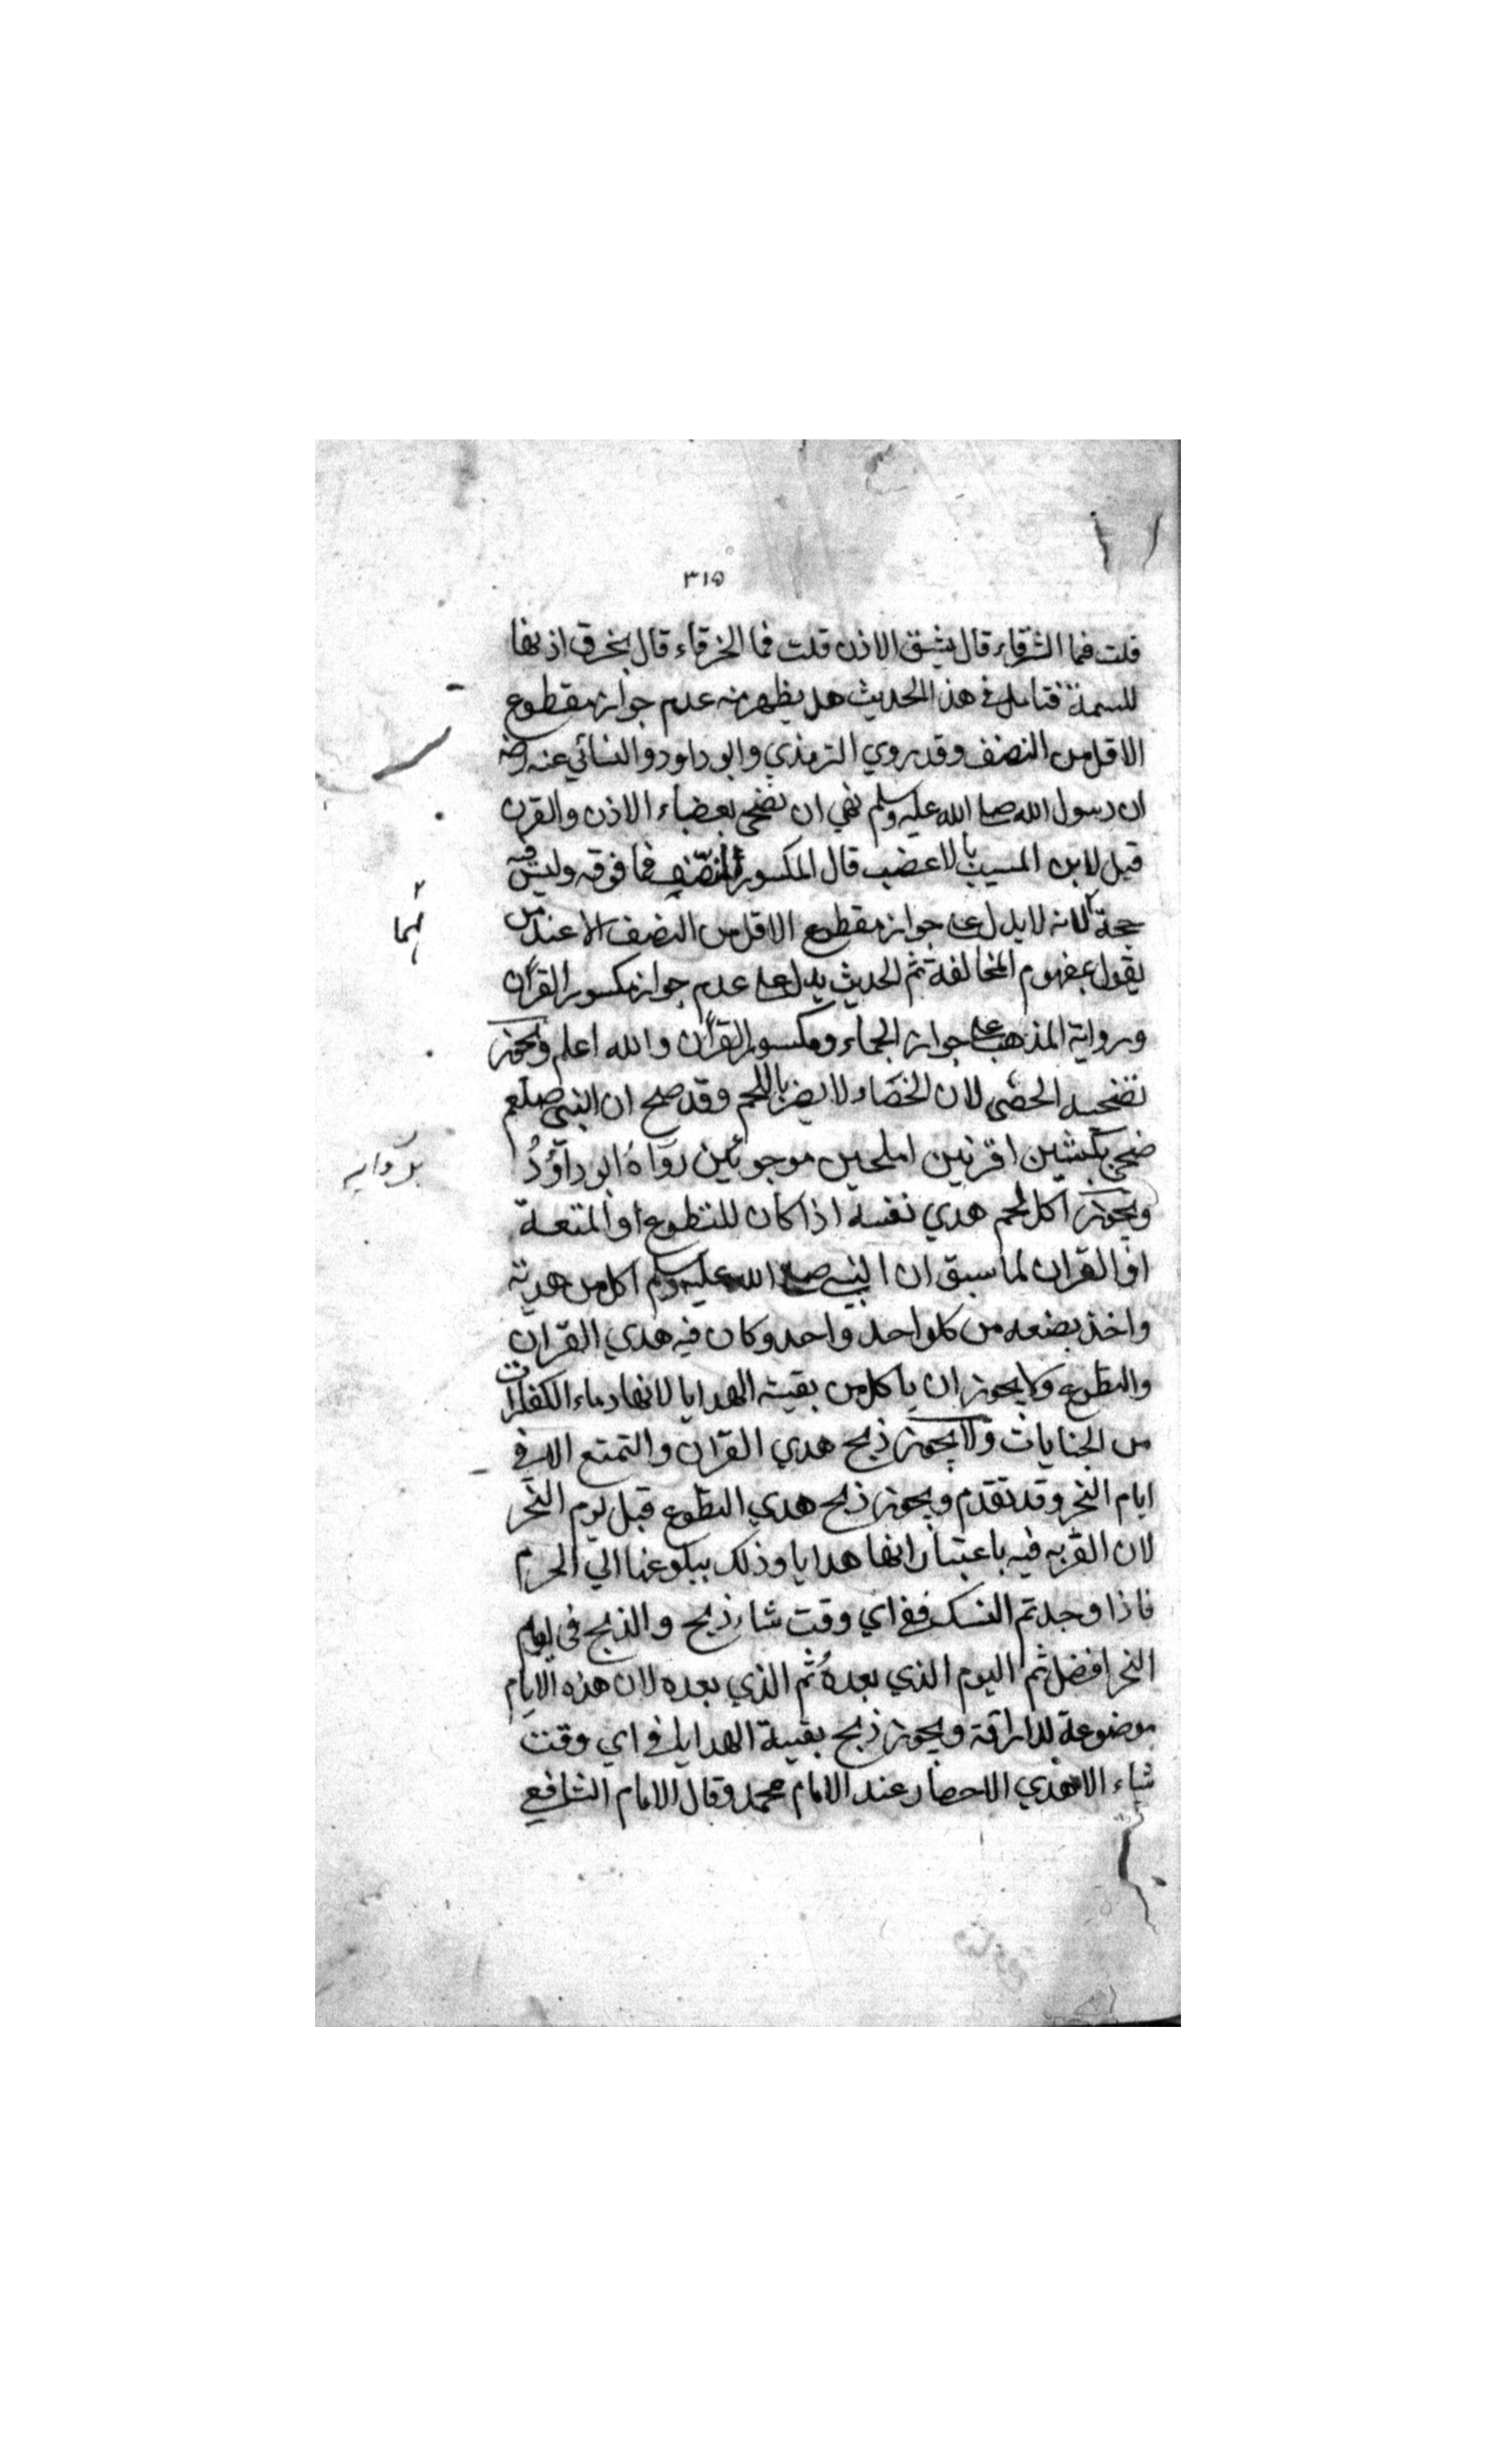 ٣١٥
قلت فما الشرقاء قال يشق الاذن قلت فما الخرقاء قال يخرق اذنها
للسمة فتامل في هذا الحديث هل يظهر منه عدم جواز مقطوع
الاقل من النصف وقد روي الترمذي وابو داود والنسائي عنه رضه
ان رسول الله صلى الله عليه وسلم نهي ان نضحي بعضباء الاذن والقرن
قيل لابن المسيب ما الاعضب قال المكسور النصف فما فوقه وليس فيه
حجة لانه لا يدل على جواز مقطوع الاقل من النصف الا عند من
يقول بمفهوم المخالفة ثم الحديث يدل على عدم جواز مكسور القران
ورواية المذهب على جواز الجماء ومكسور القران والله اعلم ويجوز
تضحية الخصي لان الخصاء لا يضر باللحم وقد صح ان النبي صلعم
ضحي بكبشين اقرنين املحين موجوئين رواه ابو داود
ويجوز اكل لحم هدي نفسه اذا كان للتطوع او المتعة
او القران لما سبق ان النبي صلى الله عليه وسلم اكل من هديه
واخذ بضعه من كل واحد واحد وكان فيه هدي القران
والتطوع ولا يجوز ان ياكل من بقية الهدايا لانها دماء الكفارات
من الجنايات ولا يجوز ذبح هدي القران والتمتع الا في
ايام النحر وقد تقدم ويجوز ذبح هدي التطوع قبل يوم النحر
لان القربه فيه باعتبار انها هدايا وذلك ببلوغها الي الحرم
فاذا وجد تم النسك ففي اي وقت شاء ذبح والذبح في يوم
النحر افضل ثم اليوم الذي بعده ثم الذي بعده لان هذه الايام
موضوعة للاراقة ويجوز ذبح بقية الهدايا في اي وقت
شاء الا هدي الاحصار عند الامام محمد وقال الامام الشافعي